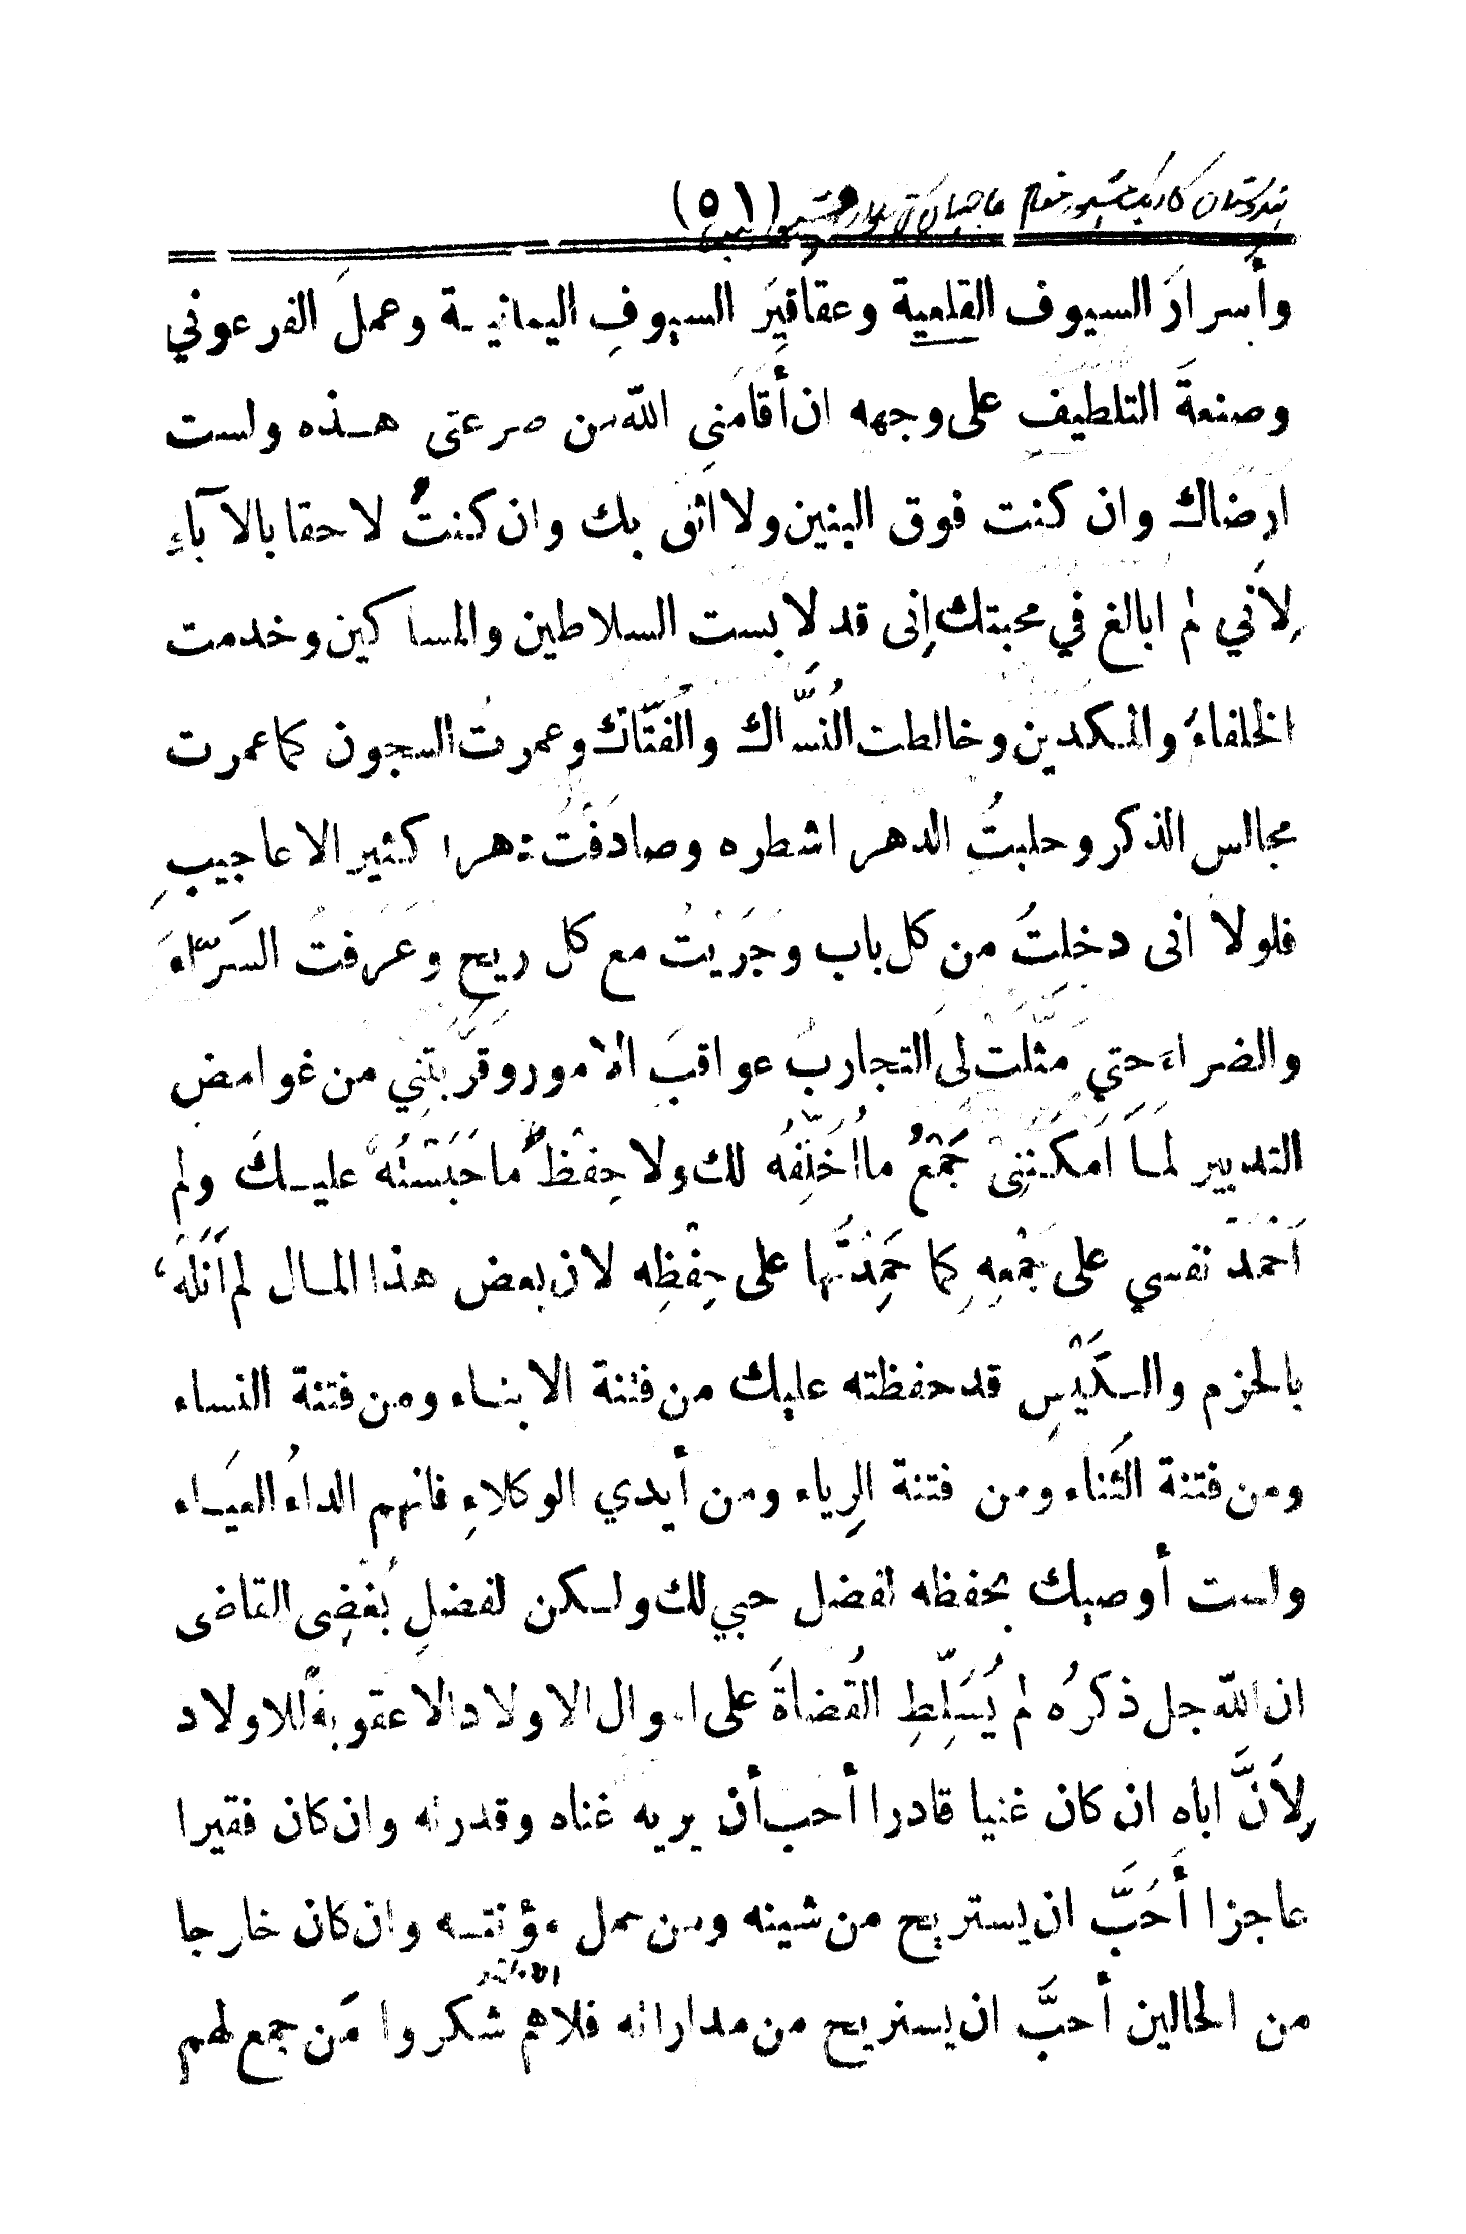 (٥١)
وأسرارَ السيوف القلعية وعقاقيِرَ السيوفِ اليمانيـة وعملَ الفرعوني
وصنعةَ التلطيفِ على وجهه ان أقامَنى اللّه من صرعتى هـذه ولست
ارضاك وان كنت فوق البنين ولا اثق بك وان كنتُ لاحقا بالاآباءِ
لِاَني لم ابالغ في محبتك إِنى قد لابست السلاطين والمساكين وخدمت
الخلفاءَ والمكدين وخالطت النُسَّاك والفُتّاك وعمرتُ السجون كما عمرت
مجالس الذكر وحلبتُ الدهر اشطره وصادَفْتُ دهرا كثير الاعاجيبِ
فلولا انى دخلتُ من كل باب وجَرَيْتُ مع كل ريح وعَرَفتُ السَرَّاءَ
والضراءَ حتي مَثّلَتْ لى التجاربُ عواقبَ الامور وقرّبَتْنِي من غوامض
التدبير لما اَمكَنَنِى جَمْعُ ما اُخَلِّفُهُ لك ولا حِفْظُ ما حَبَسْتُهُ عليـك ولم
اَحْمَدْ نفسي على جَمْعِهِ كما حَمِدْتُها على حِفْظِه لان بعض هذا المال لم اَنَلْهُ
بالحزم والكَيْسِ قد حفظته عليك من فتنة الابنـاء ومن فتنة النساء
ومن فتنة الثَناء ومن فتنة الرِياء ومن أيدي الوكلاءِ فانهم الداءُ العيَـاء
ولست أوصيك بحفظه لفضل حبي لك ولـكن لفضلِ بُغْضِى القاضى
ان اللّه جل ذكرُه لم يُسَلِّطِ القُضاةَ على اموال الاولاد الا عقوبةً للاولاد
لِاَنَّ اباه ان كان غنيا قادرا أحب أن يريه غناه وقدرته وان كان فقيرا
عاجزا أَحَبَّ ان يستريح من شينه ومن حمل مؤنتـه وان كان خارجا
من الحالين أحبَّ ان يستريح من مداراته فلاهم شكروا مَن جمع لهم